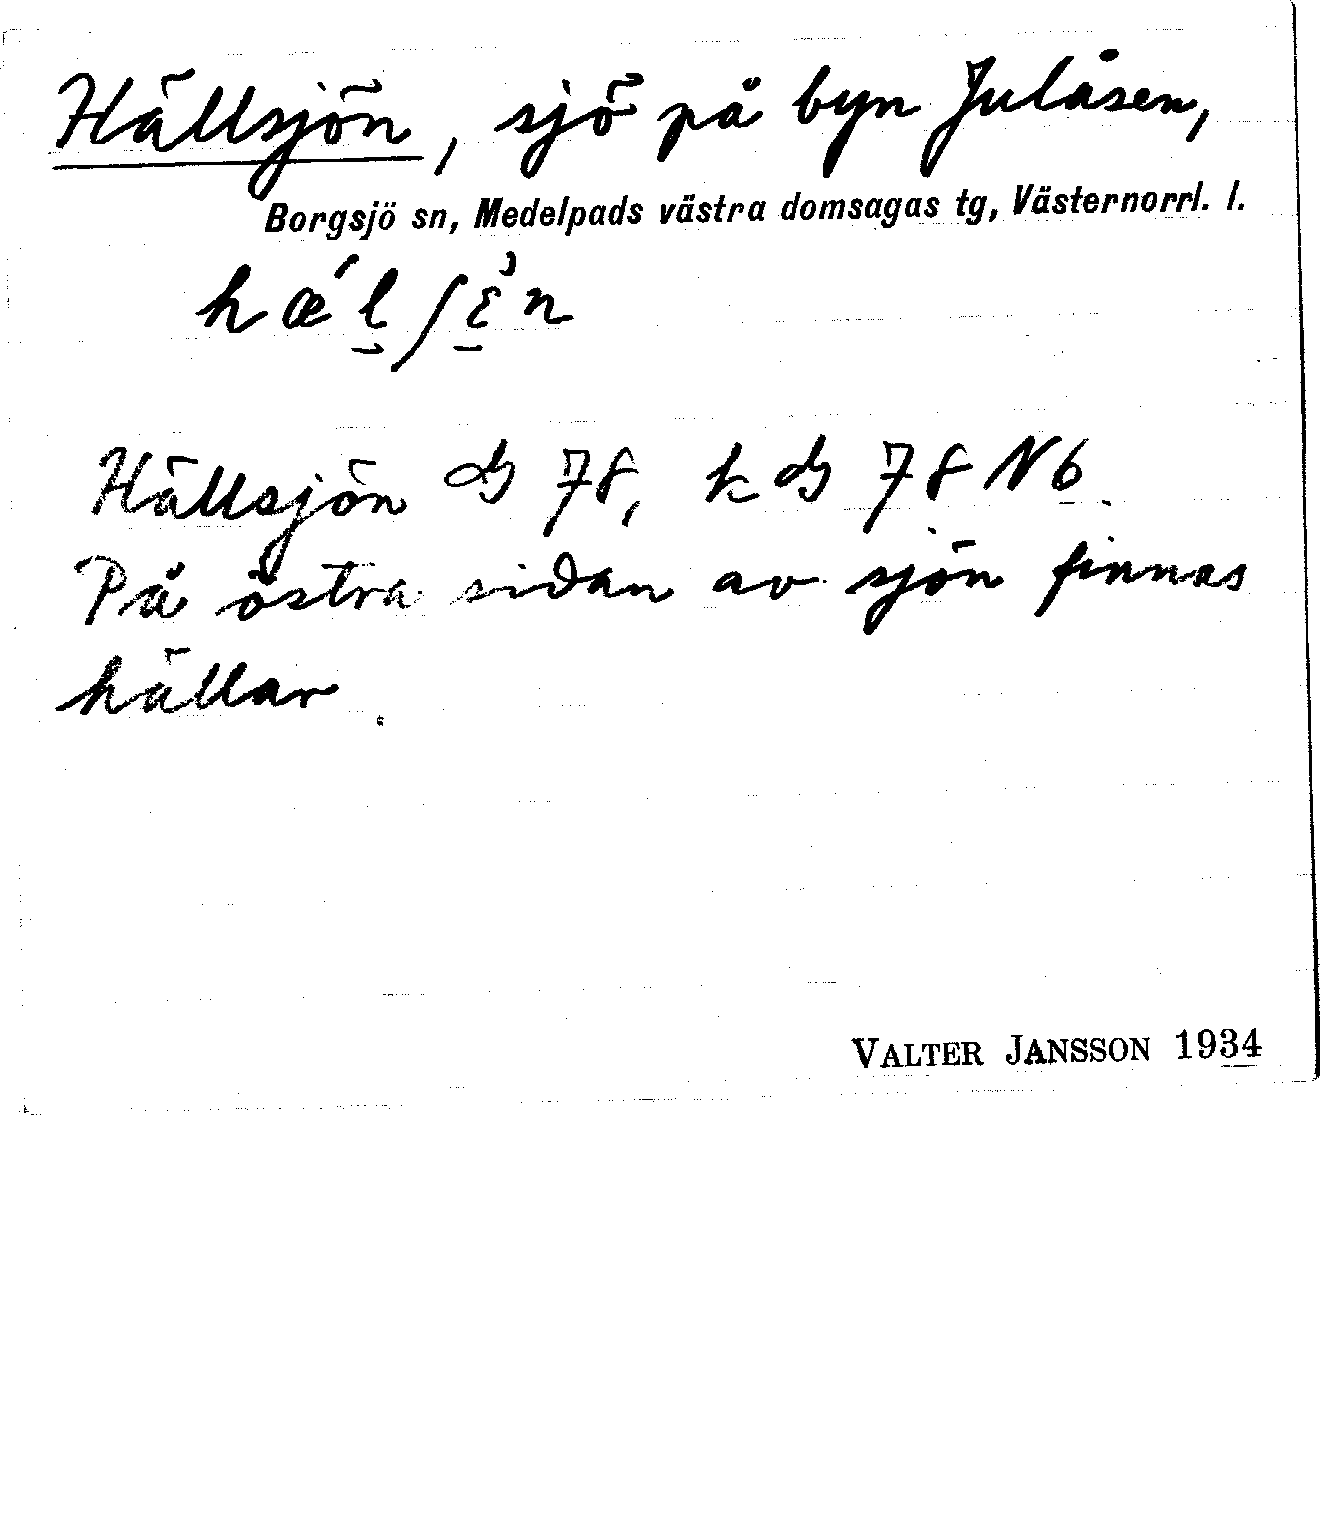 Hällsjön, sjö på byn Julåsen,
Borgsjö sn, Medelpads västra domsagas tg, Västernorrl. l.
Hällsjön 78, k 78 N6.
På östra sidan av sjön finnas
hällar.
VALTER JANSSON 1934